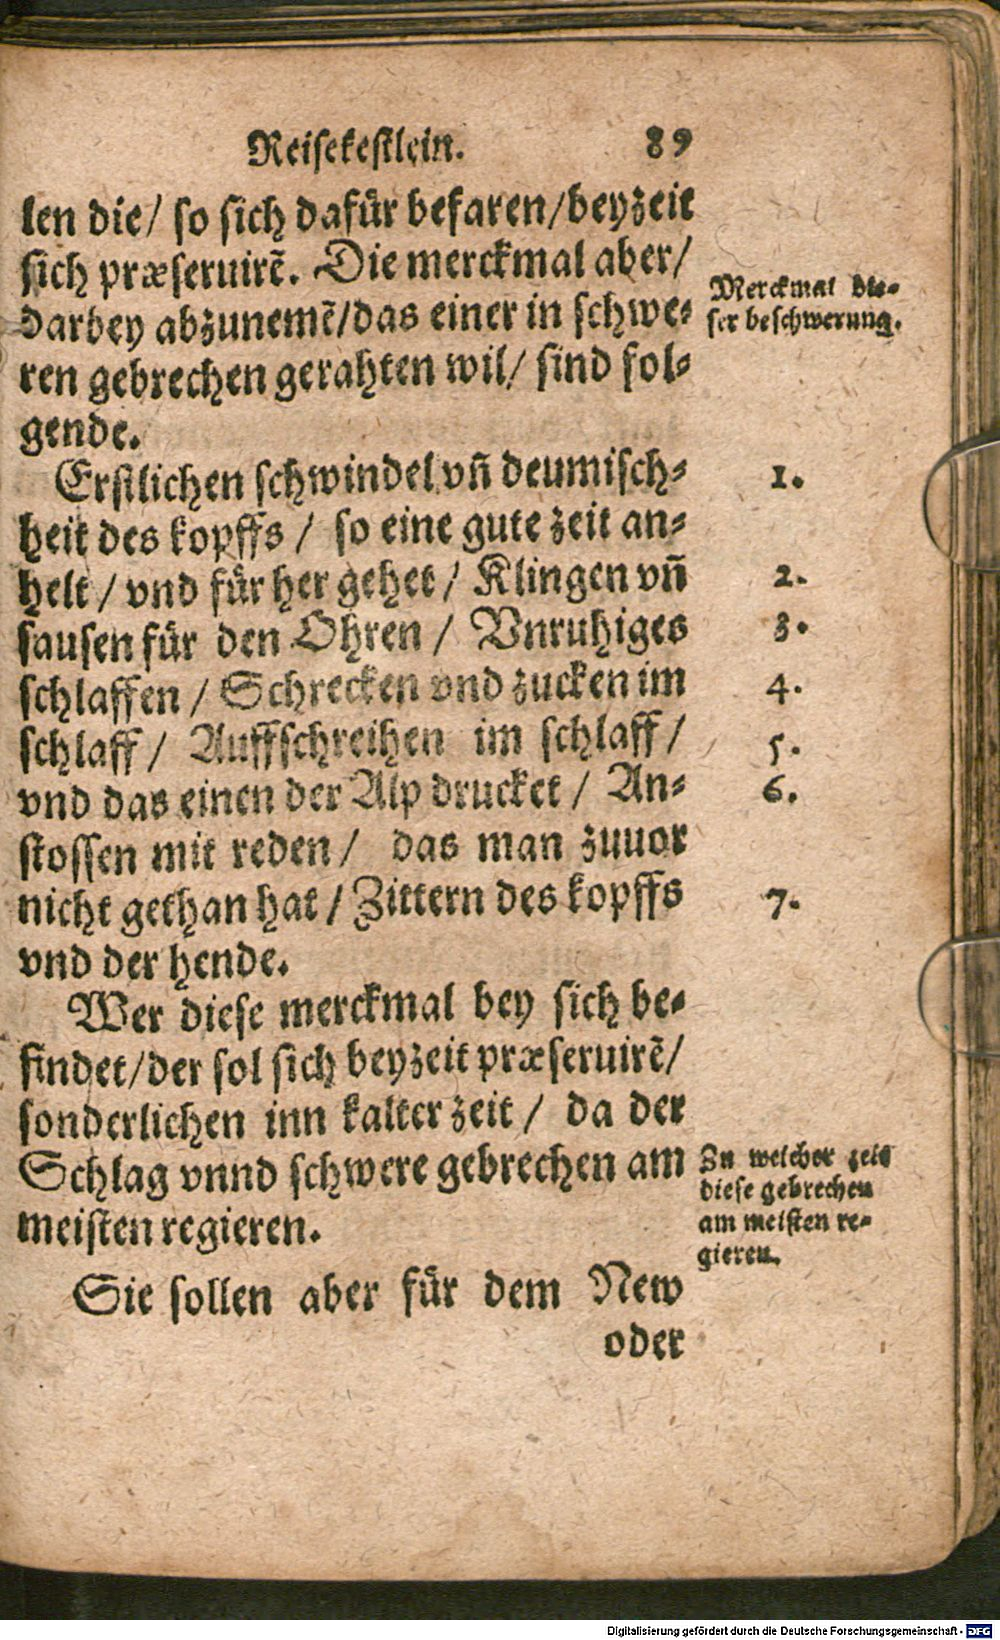 Reisekestlein. 89
len die/ so sich dafür befaren/beyzeit
sich præseruirē. Die merckmal aber/
darbey abzunemē/das einer in schwe-
ren gebrechen gerahten wil/ sind fol-
gende.
Merckmal die-
ser beschwerung.
Erstlichen schwindel vn̄ deumisch-
heit des kopffs / so eine gute zeit an-
helt / vnd für her gehet / Klingen vn̄
sausen für den Ohren / Vnruhiges
schlaffen / Schrecken vnd zucken im
schlaff / Auffschreihen im schlaff /
vnd das einen der Alp drucket / An-
stossen mit reden / das man zuuor
nicht gethan hat / Zittern des kopffs
vnd der hende.
1.
2.
3.
4.
5.
6.
7.
Wer diese merckmal bey sich be-
findet/der sol sich beyzeit præseruirē/
sonderlichen inn kalter zeit / da der
Schlag vnnd schwere gebrechen am
meisten regieren.
Zu welcher zeit
diese gebrechen
am meisten re-
gieren.
Sie sollen aber für dem New
oder
Digitalisierung gefördert durch die Deutsche Forschungsgemeinschaft - DFG